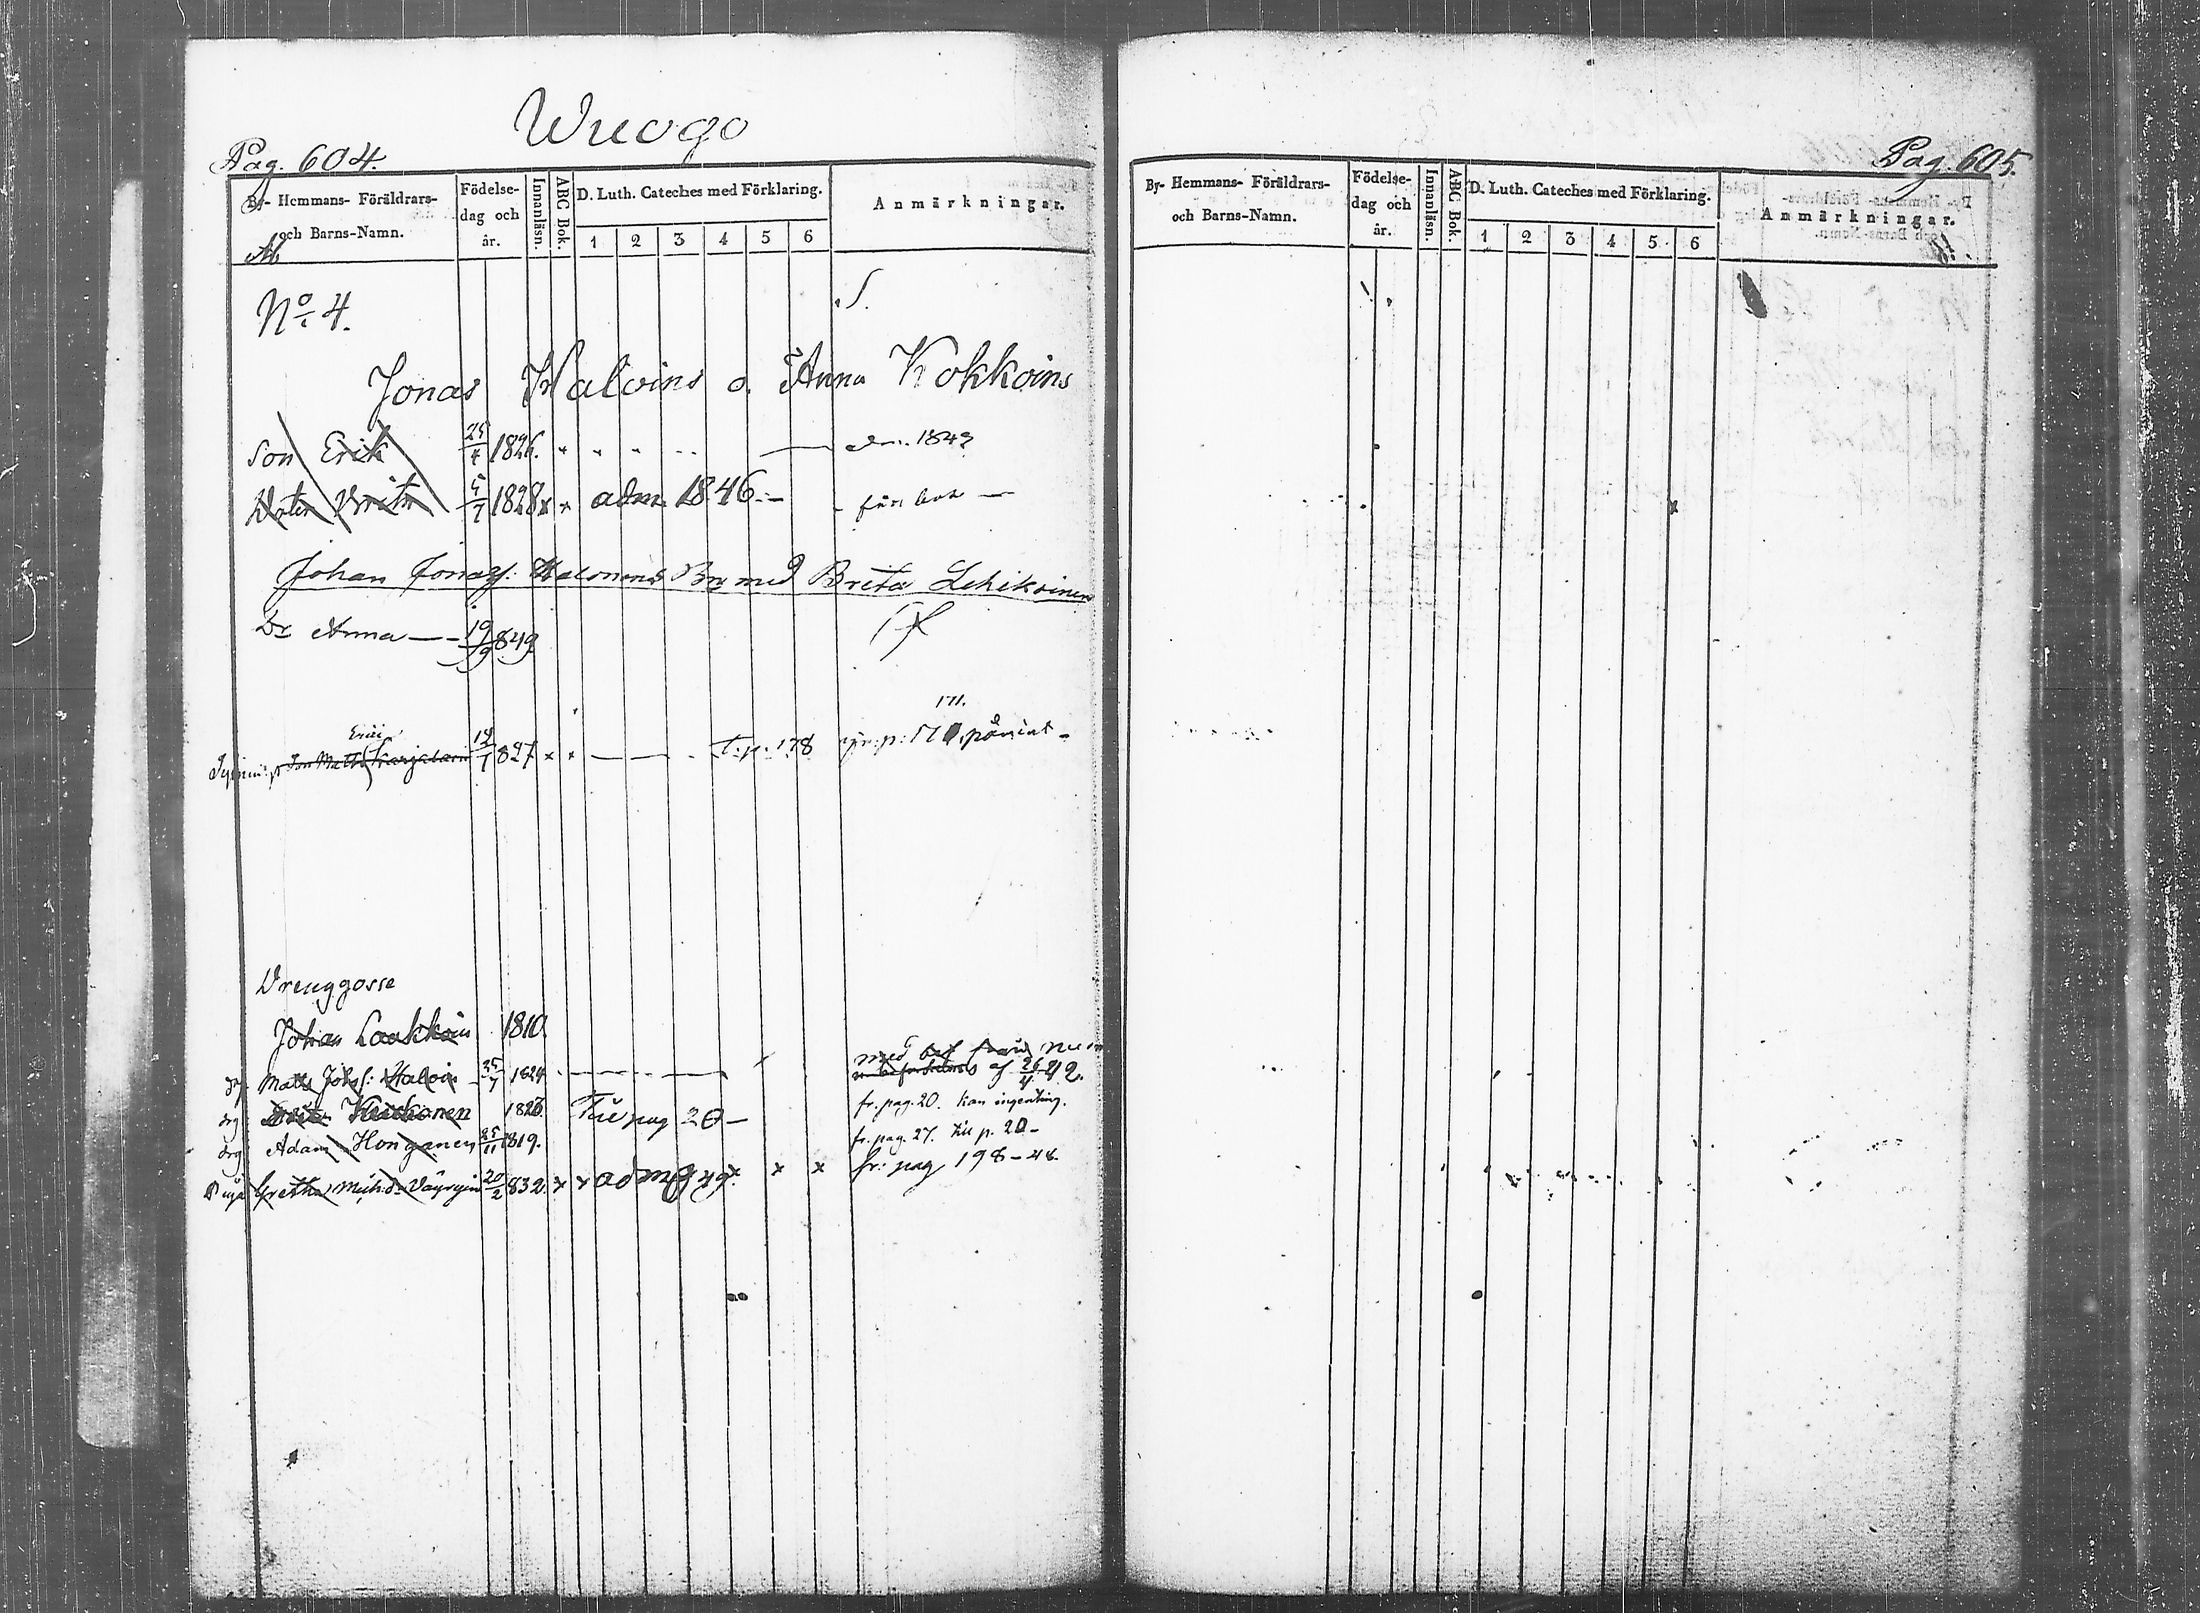 Wuogo
Pag. 604.
By- Hemmans- Föräldrars- och Barns-Namn.
Födelse- dag och år.
Innanläsn.
ABC Bok.
D. Luth. Cateches med Förklaring.
1 2 3 4 5 6
Anmärkningar.
No 4.
Jonas Halvins o. Anna Kokkoins
Son Erik 25/4 1826. adm. 1843
Doter Brita 5/7 1828 x x adm. 1846
Johan Jonass: Halonens Br med Brita Lehikoinen
Dr Anna 19/9 849
171.
Erici
Son Matts Karjalain 827 x x T. p. 178
Drenggosse
Johan Laukkain 1810.
Matts Johss: Halvin 1824 med nu
af 26/4 42.
drg Keichonen 1823. Till pag 20 fr. pag. 20. kan ingenting.
drg Adam Honganen 25/11 1819. fr. pag. 27. till p. 20
Piga Gretha Mich.dr Väyryin 20/2 832. x x adm 849. x x x fr: pag 198-48.
Pag. 605.
By- Hemmans- Föräldrars- och Barns-Namn.
Födelse- dag och år.
Innanläsn.
ABC Bok.
D. Luth. Cateches med Förklaring.
1 2 3 4 5 6
Anmärkningar.